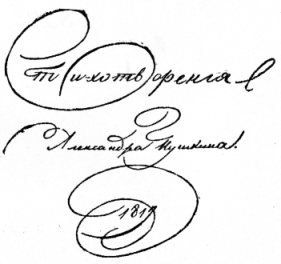 Стихотворенія
Александра Пушкина.
1817